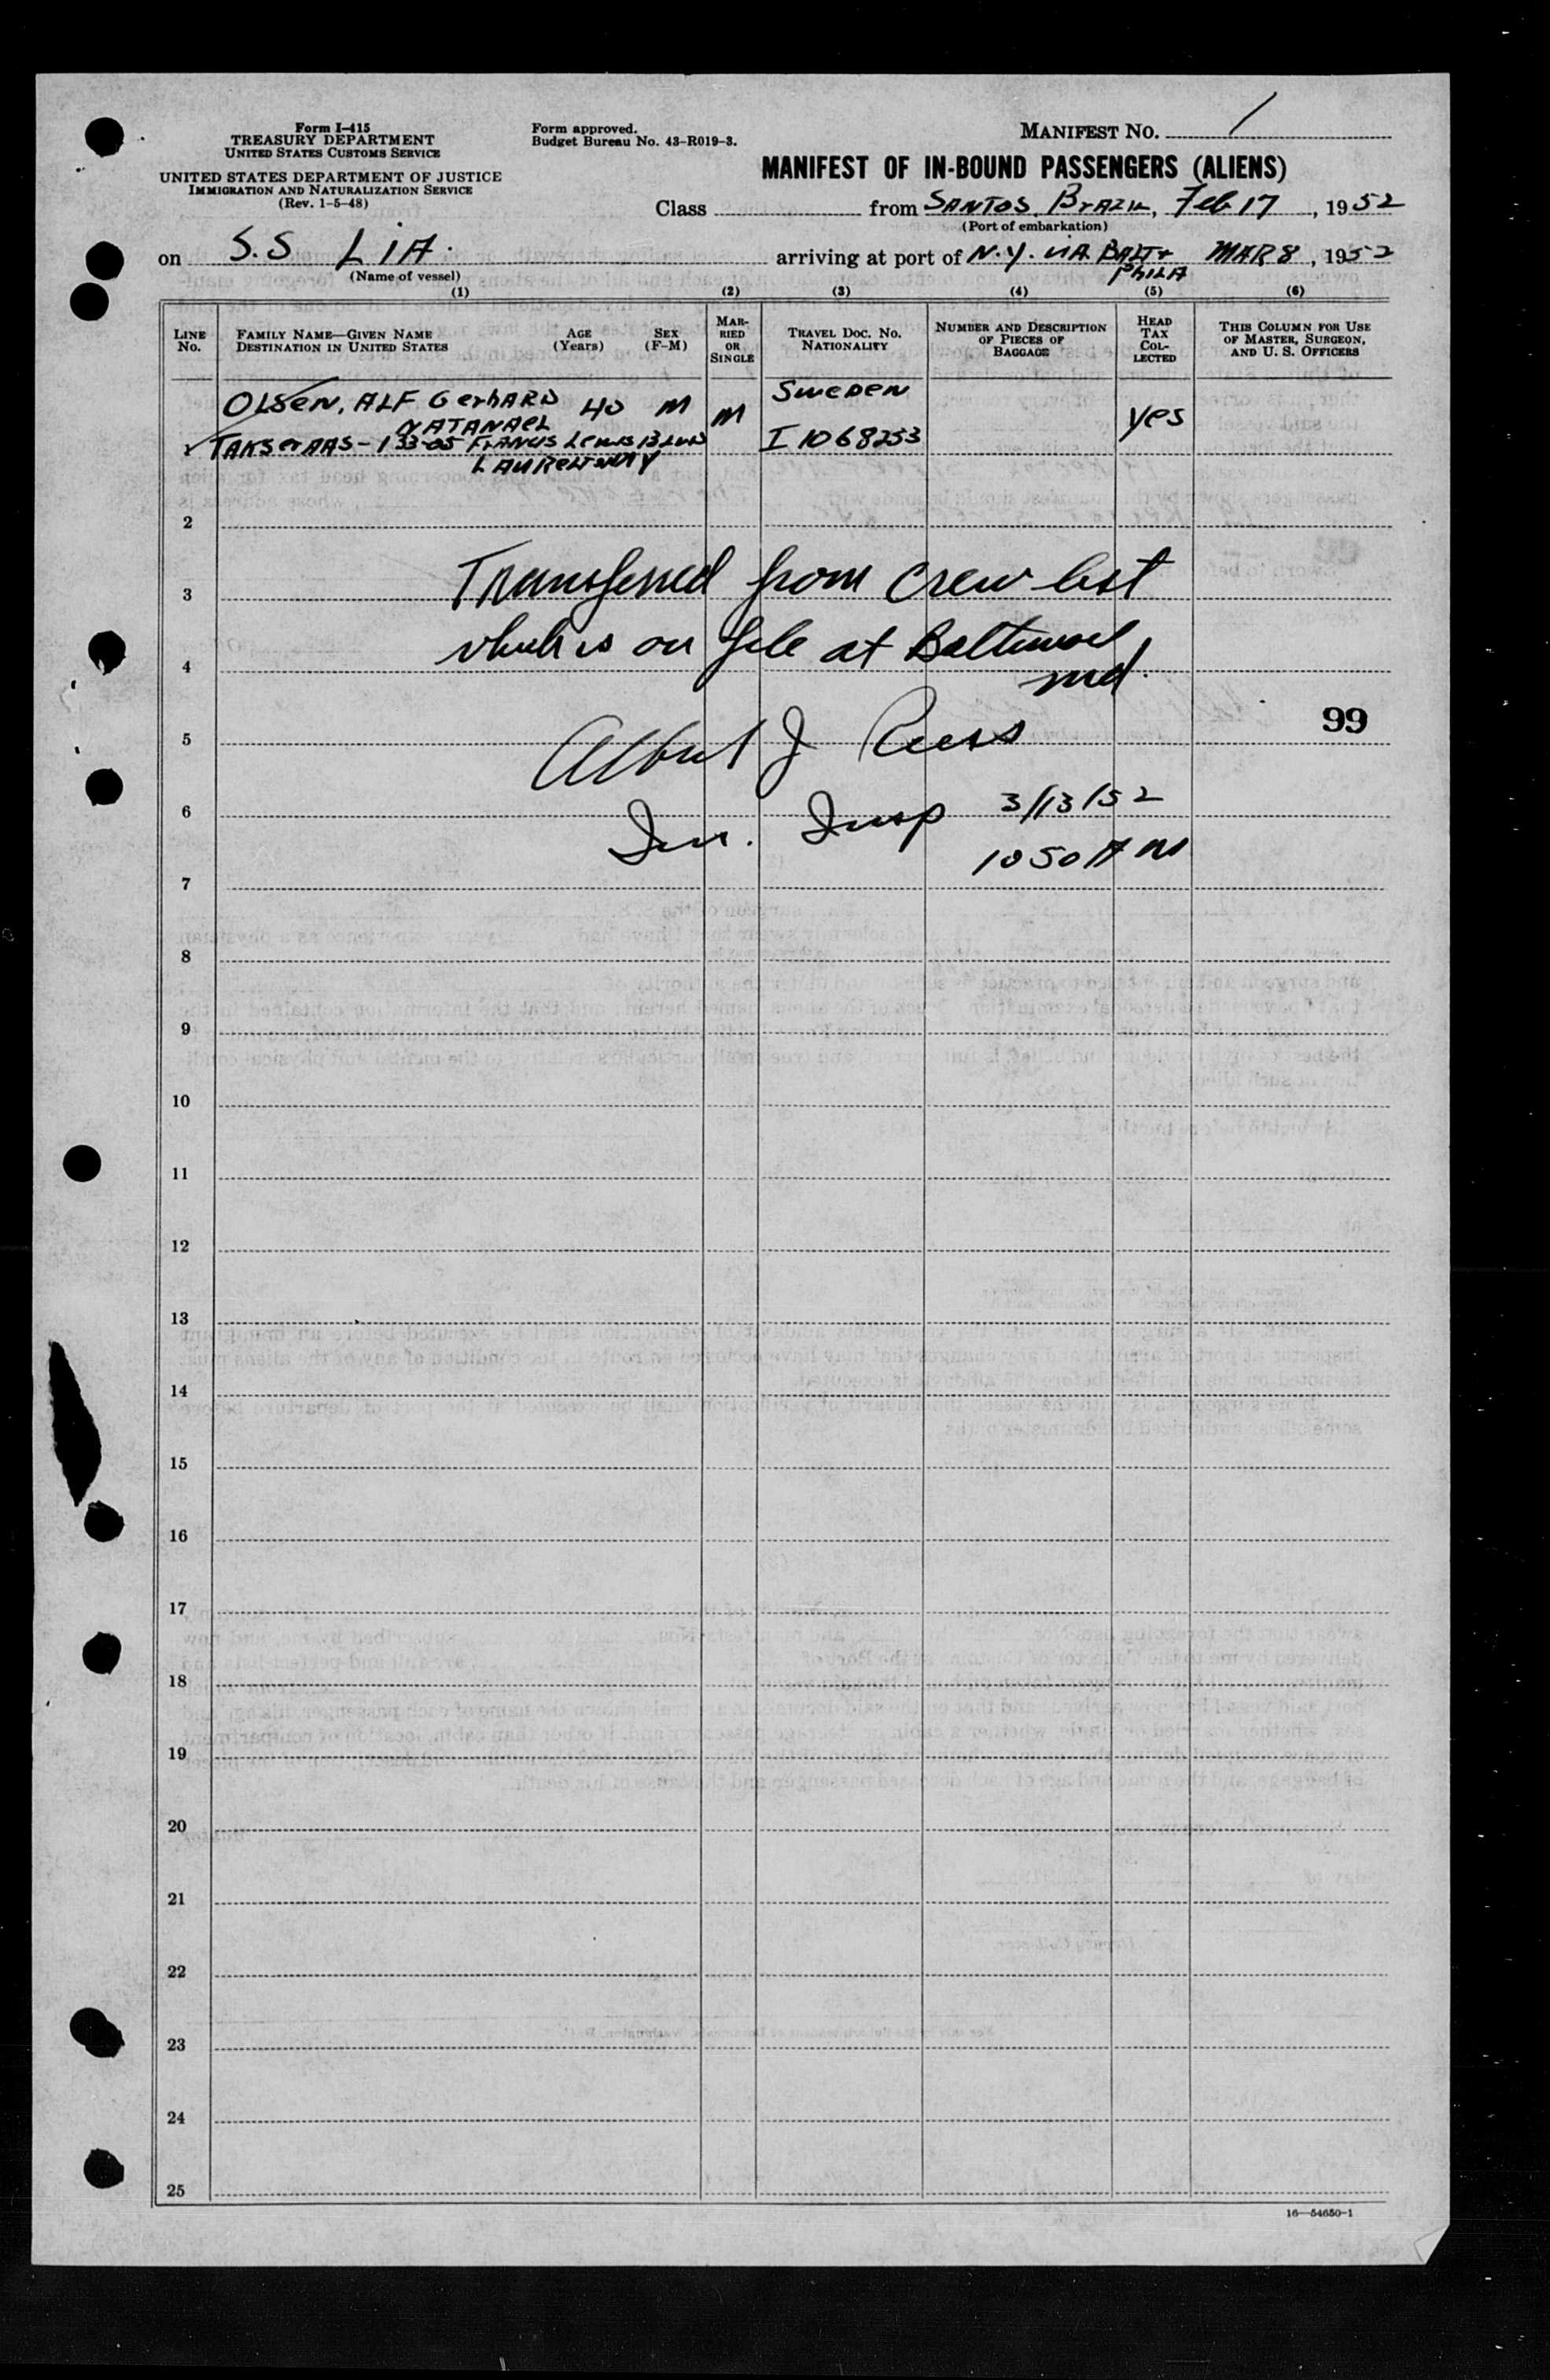 Form I-415
TREASURY DEPARTMENT
UNITED STATES CUSTOMS SERVICE
UNITED STATES DEPARTMENT OF JUSTICE
IMMIGRATION AND NATURALIZATION SERVICE
(Rev. 1-5-48)
Form approved.
Budget Bureau No. 43-R019-3.
MANIFEST NO. 1
MANIFEST OF IN-BOUND PASSENGERS (ALIENS)
Class from SANTOS, BrAZIL, Feb 17, 1952
(Port of embarkation)
on S.S LiA. arriving at port of N.Y. VIA BALT + MAR 8, 1952
PhILA
(Name of vessel)
(1) (2) (3) (4) (5) (6)
LINE No. FAMILY NAME—GIVEN NAME DESTINATION IN UNITED STATES AGE (Years) SEX (F-M) MARRIED OR SINGLE TRAVEL DOC. NO. NATIONALITY NUMBER AND DESCRIPTION OF PIECES OF BAGGAGE HEAD TAX COLLECTED THIS COLUMN FOR USE OF MASTER, SURGEON, AND U. S. OFFICERS
OLSEN, ALF GerhARD 40 M M Sweden yes
NATANAEL
TAKSerAAS - 133-05 FrANCIS LEWIS BLVD I 1068253
LAURELTON NY
2
3 Transferred from crew list
4 which is on file at Baltimore
md.
99
5 Albert J
6 Im. Insp 3/13/52
10 50 AM
7
8
9
10
11
12
13
14
15
16
17
18
19
20
21
22
23
24
25
16—54650-1